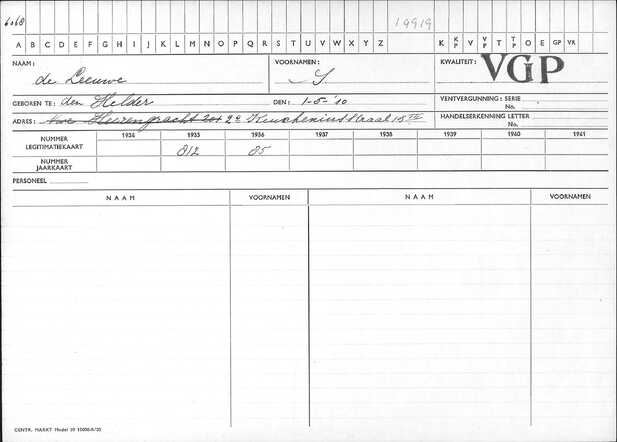 6068 19919
A B C D E F G H I J K L M N O P Q R S T U V W X Y Z K KP V VP T TP O E GP VR
NAAM: de Leeuwe VOORNAMEN: S. KWALITEIT: VGP
GEBOREN TE: den Helder DEN: 1-5-'10 VENTVERGUNNING: SERIE
No.
ADRES: Heerengracht 22 Kucheniusstraat 18 III HANDELSERKENNING LETTER
No.
NUMMER LEGITIMATIEKAART 1934 1935 1936 1937 1938 1939 1940 1941
812 85
NUMMER JAARKAART
PERSONEEL
NAAM VOORNAMEN NAAM VOORNAMEN
CENTR. MARKT Model 39 10000-8/35